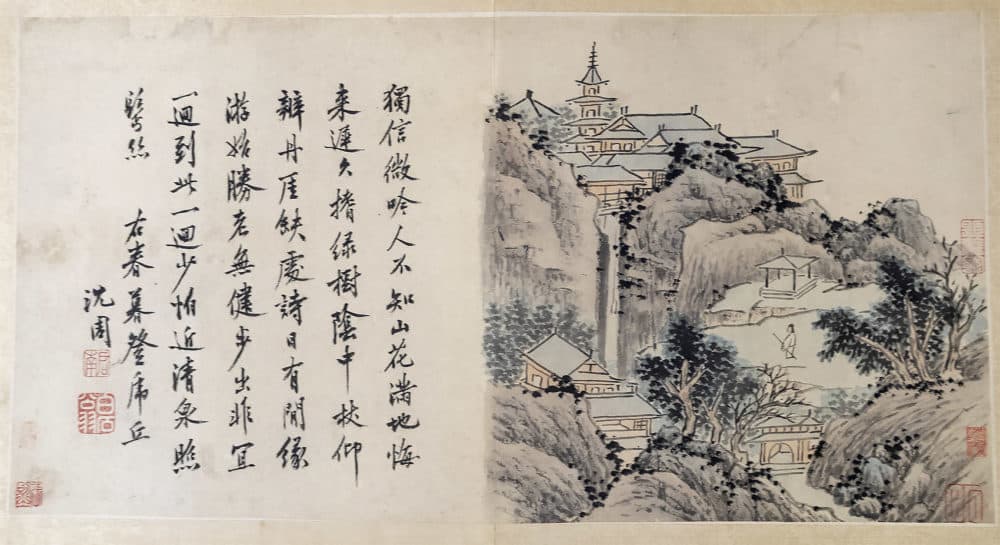 獨信微吟人不知山花滿地悔
来遲久搘緑樹陰中杖仰
辦丹厓缺處詩日有閒緣
游始勝老無健步出非宜
一迴到此一迴少怕近清泉照
鬢絲 右春暮登虎丘
沈周
啟南
白石翁